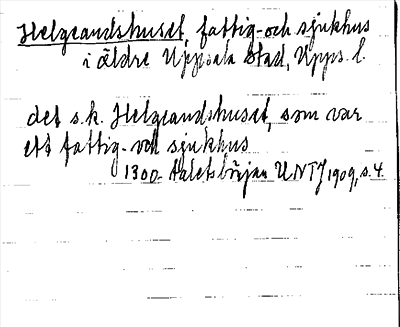 Helgeandshuset, fattig- och sjukhus
i äldre Uppsala stad, Upps. l.
det s.k. Helgeandshuset, som var
ett fattig- och sjukhus
1300-talets början UNT J 1909, s. 4.